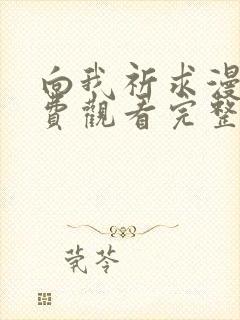 向我祈求漫
費觀看完整
茕苓